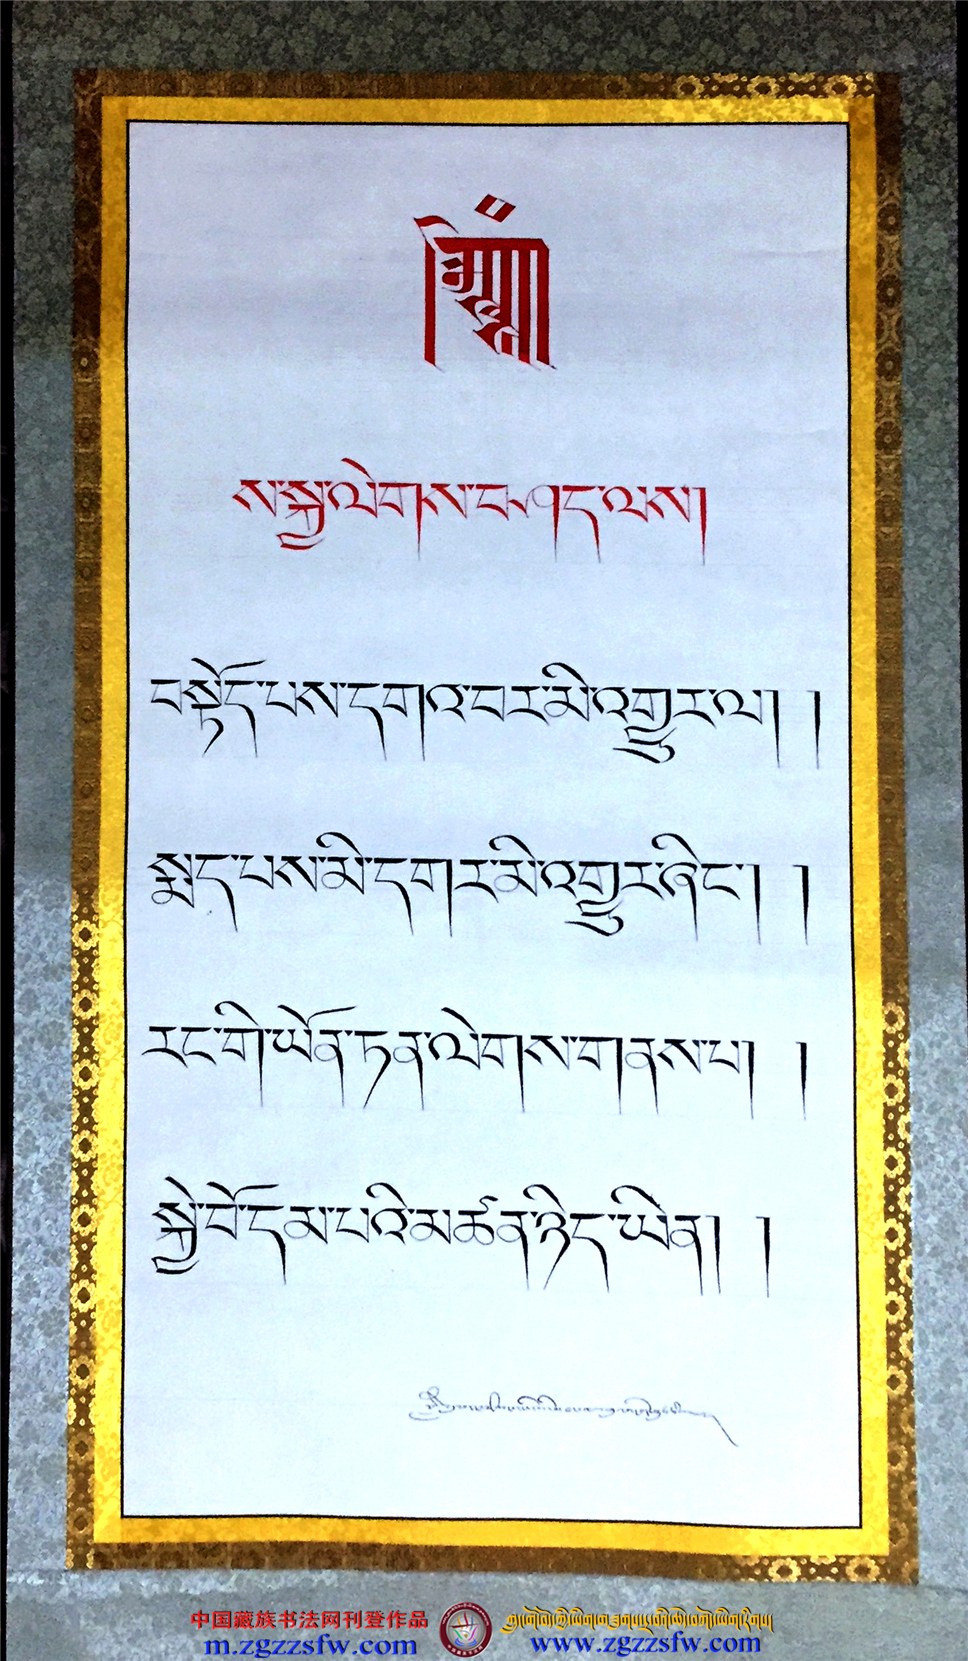 ས་སྐྱ་ལེགས་བཤད་ལས།
བསྟོད་པས་དགའ་བར་མི་འགྱུར་ལ། །
སྨད་པས་མི་དགར་མི་འགྱུར་ཞིང་། །
རང་གི་ཡོན་ཏན་ལེགས་གནས་པ། །
སྐྱེ་བོ་དམ་པའི་མཚན་ཉིད་ཡིན། །
中国藏族书法网刊登作品
m.zgzzsfw.com
www.zgzzsfw.com